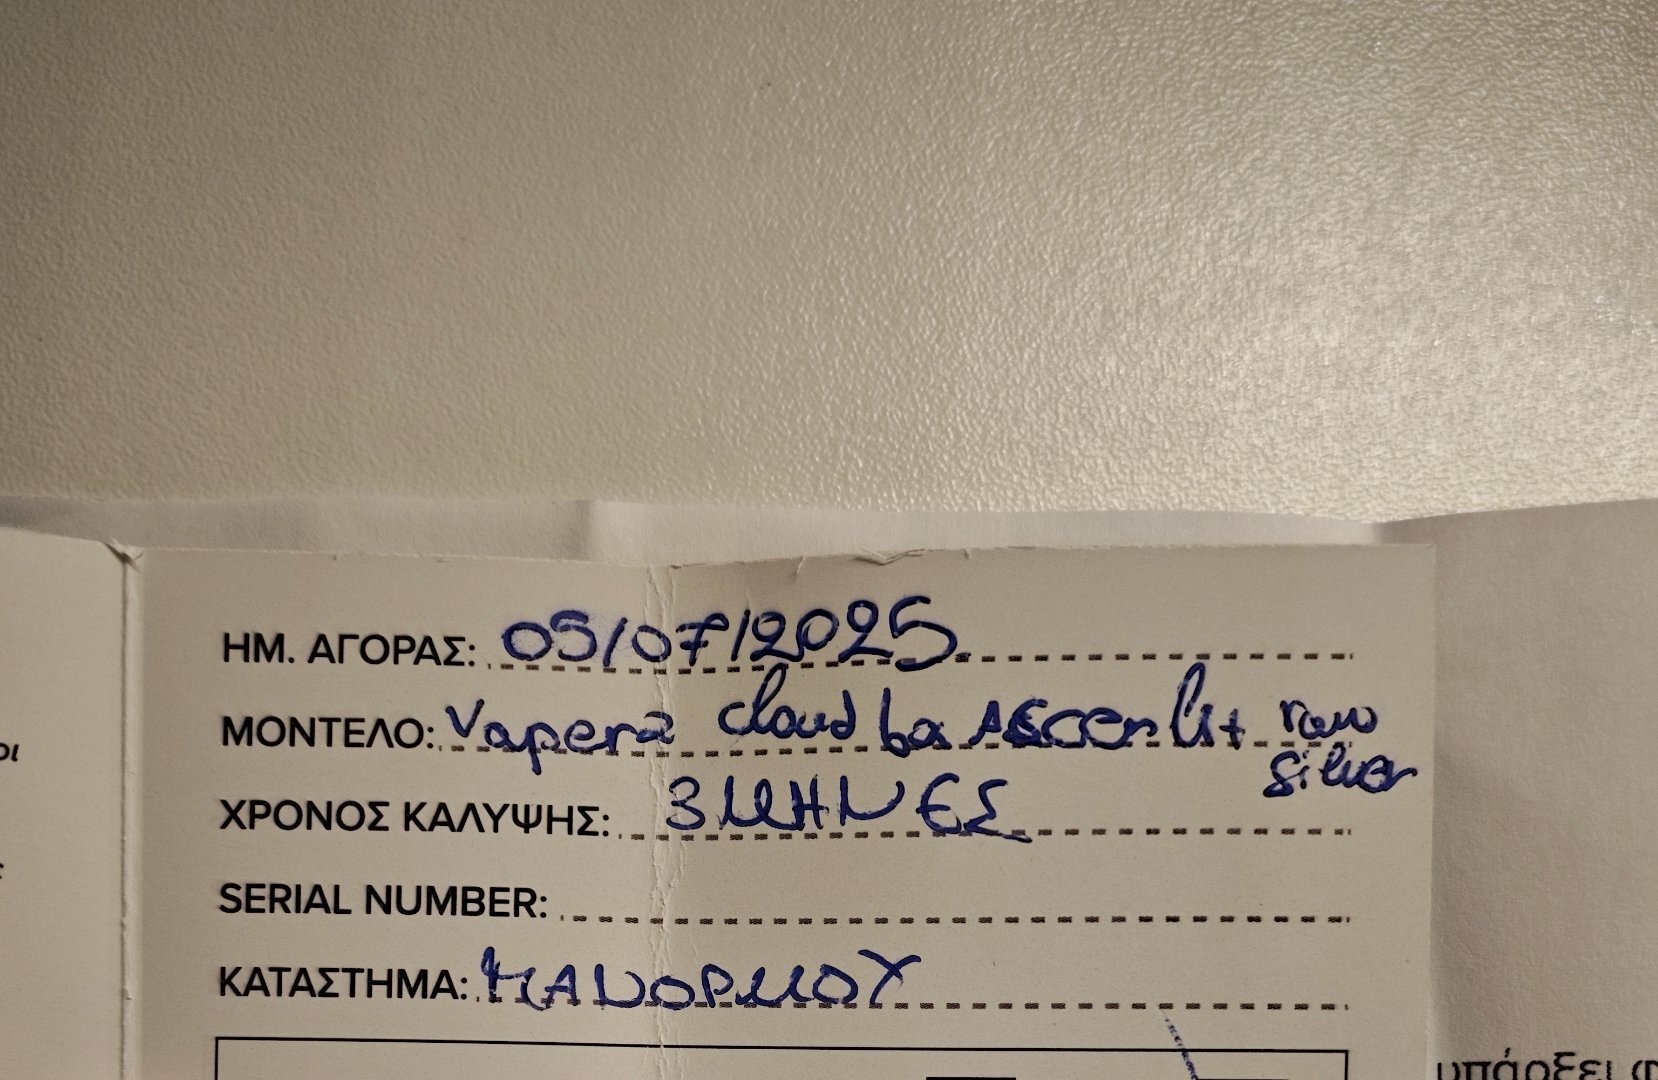 ΗΜ. ΑΓΟΡΑΣ: 05/07/2025
ΜΟΝΤΕΛΟ: Vaper cloud ba Ascent lit raw
silver
ΧΡΟΝΟΣ ΚΑΛΥΨΗΣ: 3 ΜΗΝΕΣ
SERIAL NUMBER:
ΚΑΤΑΣΤΗΜΑ: ΠΑΝΟΡΜΟΥ
οι
υπάρξει